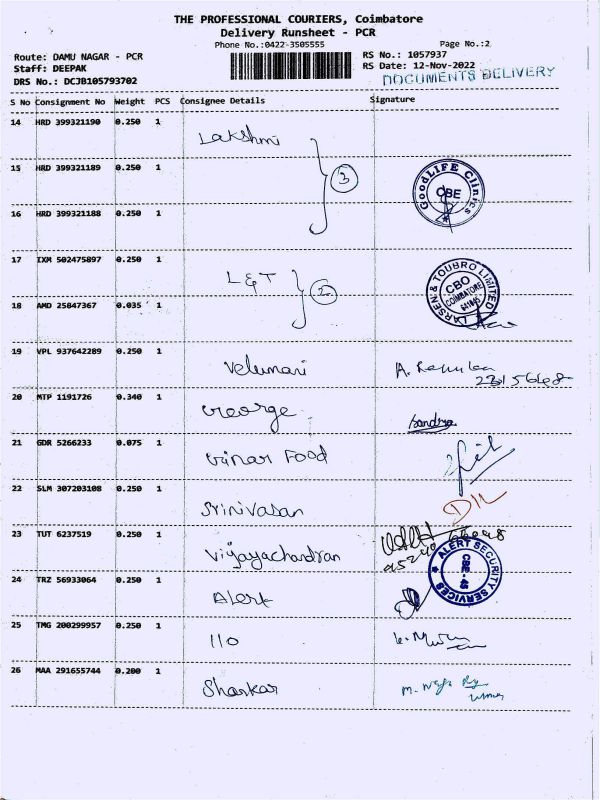 THE PROFESSIONAL COURIERS, Coimbatore
Delivery Runsheet - PCR
Phone No.:0422-3505555
Page No.:2
Route: DAMU NAGAR - PCR
RS No.: 1057937
Staff: DEEPAK
RS Date: 12-Nov-2022
DRS No.: DCJB105793702
DOCUMENTS DELIVERY
S No Consignment No Weight PCS Consignee Details Signature
14 HRD 399321190 0.250 1 Lakshmi
15 HRD 399321189 0.250 1
3
GoodLIFE Clinics CBE
16 HRD 399321188 0.250 1
17 IXM 502475897 0.250 1 L&T
2
LARSEN & TOUBRO LIMITED CBO COIMBATORE
18 AMD 25847367 0.035 1
19 VPL 937642289 0.250 1 Velumani A.
20 MTP 1191726 0.340 1 George Sandra
21 GDR 5266233 0.075 1 Vinar Food
22 SLM 307203108 0.250 1 Srinivasan
23 TUT 6237519 0.250 1 Vijayachandran
24 TRZ 56933064 0.250 1 Alert
ALERT SECURITY SERVICES CBE - 45
25 TMG 200299957 0.250 1 110
26 MAA 291655744 0.200 1 Shankar